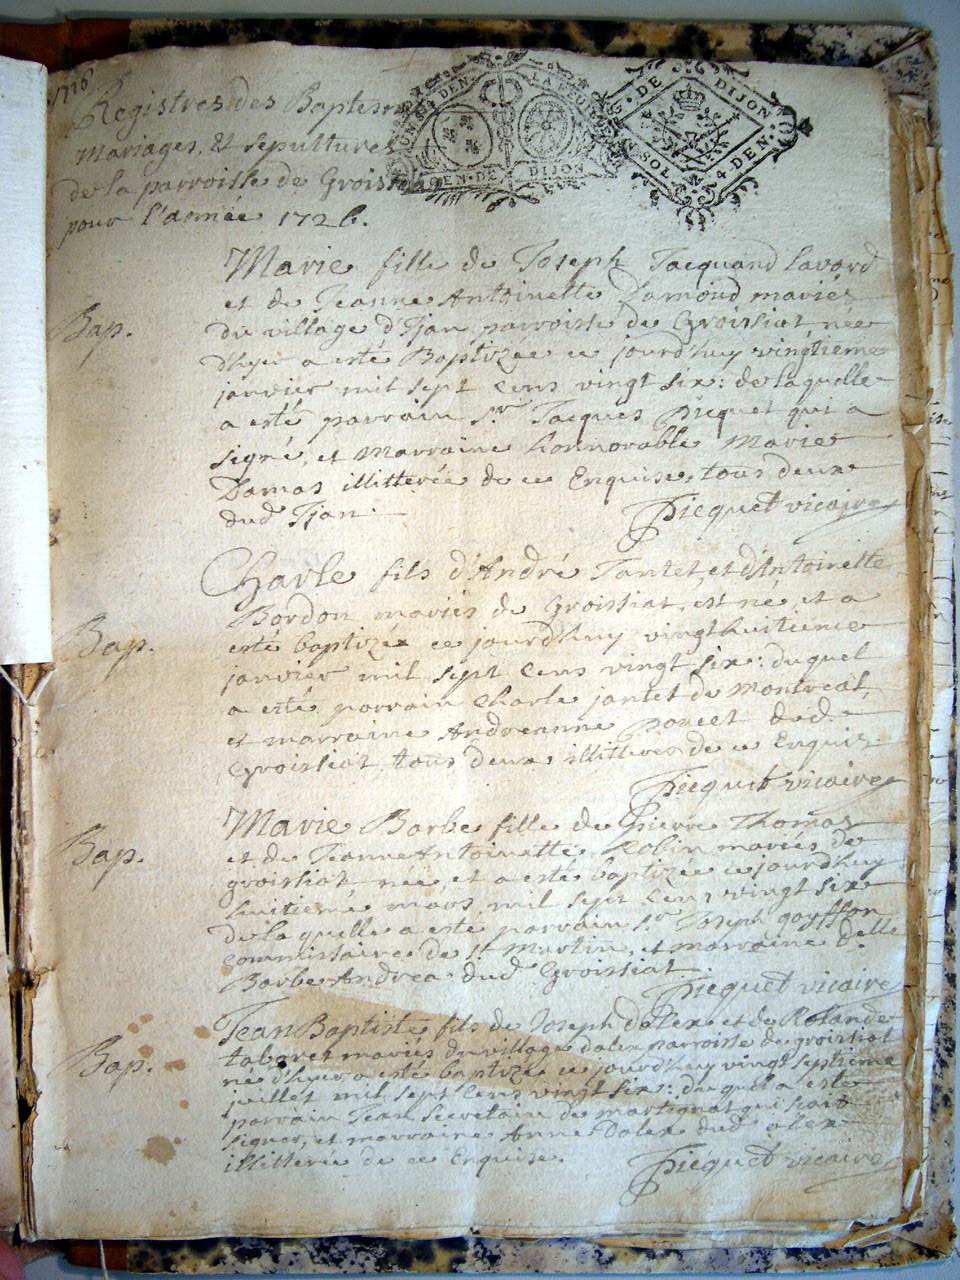 1726
Registres des Baptesmes
Mariages, et sepultures
de la parroisse de Groissia
pour l'année 1726.
GN·SOL 4 DEN· LA FEUI
GEN·DE DIJON
G·DE DIJON
VN SOL 4 DEN·
Marie fille de Joseph Jacquand Lavord
et de Jeanne Antoinette Lamoud mariés
Bap.
du village d'Jjan parroisse de Groissiat née
d'hyer a esté Baptizée ce jourdhuy vingtieme
janvier mil sept cens vingt six: de laquelle
a esté parrain sr. Jacques Picquet qui a
signé, et Marraine honnorable Marie
Damas illitterée de ce Enquise, tous deux
dud Jjan. Picquet vicaire
Charle fils d'André Tantet, et d'Antoinette
Bordon mariés de Groissiat, est né, et a
Bap.
esté baptizé ce jourdhuy vingthuitieme
janvier mil sept cens vingt six: duquel
a esté parrain Charle jantet de Montreal,
et marraine Andreanne Poncet dud.
Groissiat, tous deux illitterés de ce Enquis
Picquet vicaire
Marie Barbe fille de pierre Thomas
et de Jeanne Antoinette Robin mariés de
Bap.
groissiat née, et a esté baptizée ce jourdhuy
huitieme mars mil sept cens vingt six
de laquelle a esté parrain sr. Joseph goyffon
commissaire de st. Martin, et marraine delle
Barbe Andrea dud Groissiat
Picquet vicaire
Jean Baptiste fils de Joseph dalex et de Rolande
taboret mariés du village dalex parroisse de groissiat
Bap.
né d'hyer a esté baptizé ce jourdhuy vingt septieme
juillet mil sept cens vingt six: duquel a esté
parrain Jean Secretain de martignat qui scait
signer, et marraine Anne Dalex dud alex
illitterée de ce Enquise.
Picquet vicaire